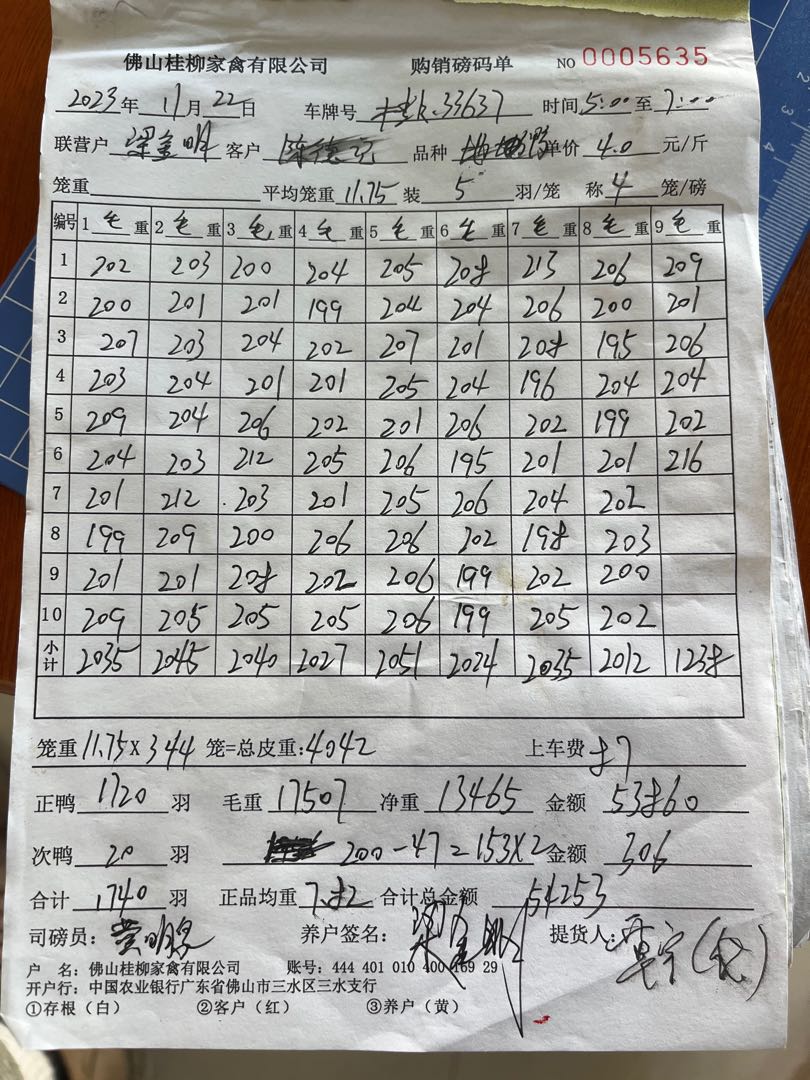 佛山桂柳家禽有限公司 购销磅码单 NO 0005635
2023年11月22日 车牌号 33637 时间5:00至7:00
联营户 梁金明 客户 品种 单价 4.0 元/斤
笼重 平均笼重 11.75 装 5 羽/笼 称 4 笼/磅
编号 1毛重 2毛重 3毛重 4毛重 5毛重 6毛重 7毛重 8毛重 9毛重
1 202 203 200 204 205 208 213 206 209
2 200 201 201 199 204 204 206 200 201
3 207 203 204 202 207 201 208 195 206
4 203 204 201 201 205 204 196 204 204
5 209 204 206 202 201 206 202 199 202
6 204 203 212 205 206 195 201 201 216
7 201 212 203 201 205 206 204 202
8 199 209 200 206 206 202 198 203
9 201 201 208 202 206 199 202 200
10 209 205 205 205 206 199 205 202
小计 2035 2045 2040 2027 2051 2024 2035 2012 1238
笼重 11.75 X 344 笼=总皮重:4042 上车费 87
正鸭 1720 羽 毛重 17507 净重 13465 金额 53860
次鸭 20 羽 200-47=153X2 金额 306
合计 1740 羽 正品均重 7.82 合计总金额 54253
司磅员: 养户签名: 梁金明 提货人:
户 名: 佛山桂柳家禽有限公司 账号: 444 401 010 400 169 29
开户行: 中国农业银行广东省佛山市三水区三水支行
①存根（白） ②客户（红） ③养户（黄）